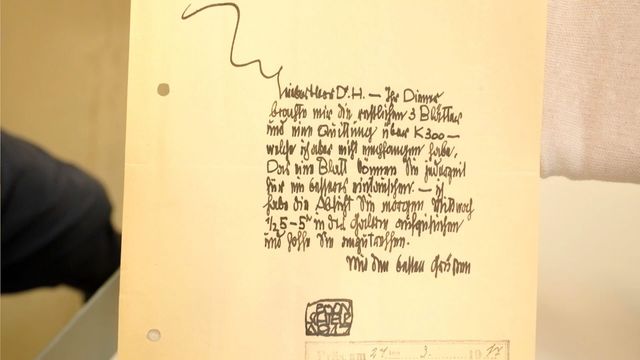 Lieber Herr Dr. H. — Ihr Diener
brachte mir die restlichen 3 Blätter
und eine Quittung über K 300 —
welche ich aber nicht empfangen habe.
Das eine Blatt können Sie jederzeit
für ein besseres eintauschen. — ich
habe die Absicht Sie morgen Mittwoch
1/2 5 – 5h in der Gallerie aufzusuchen
und hoffe Sie anzutreffen.
Mit den besten Grüssen
EGON
SCHIELE
1917
Präs. am 27 3. 1917